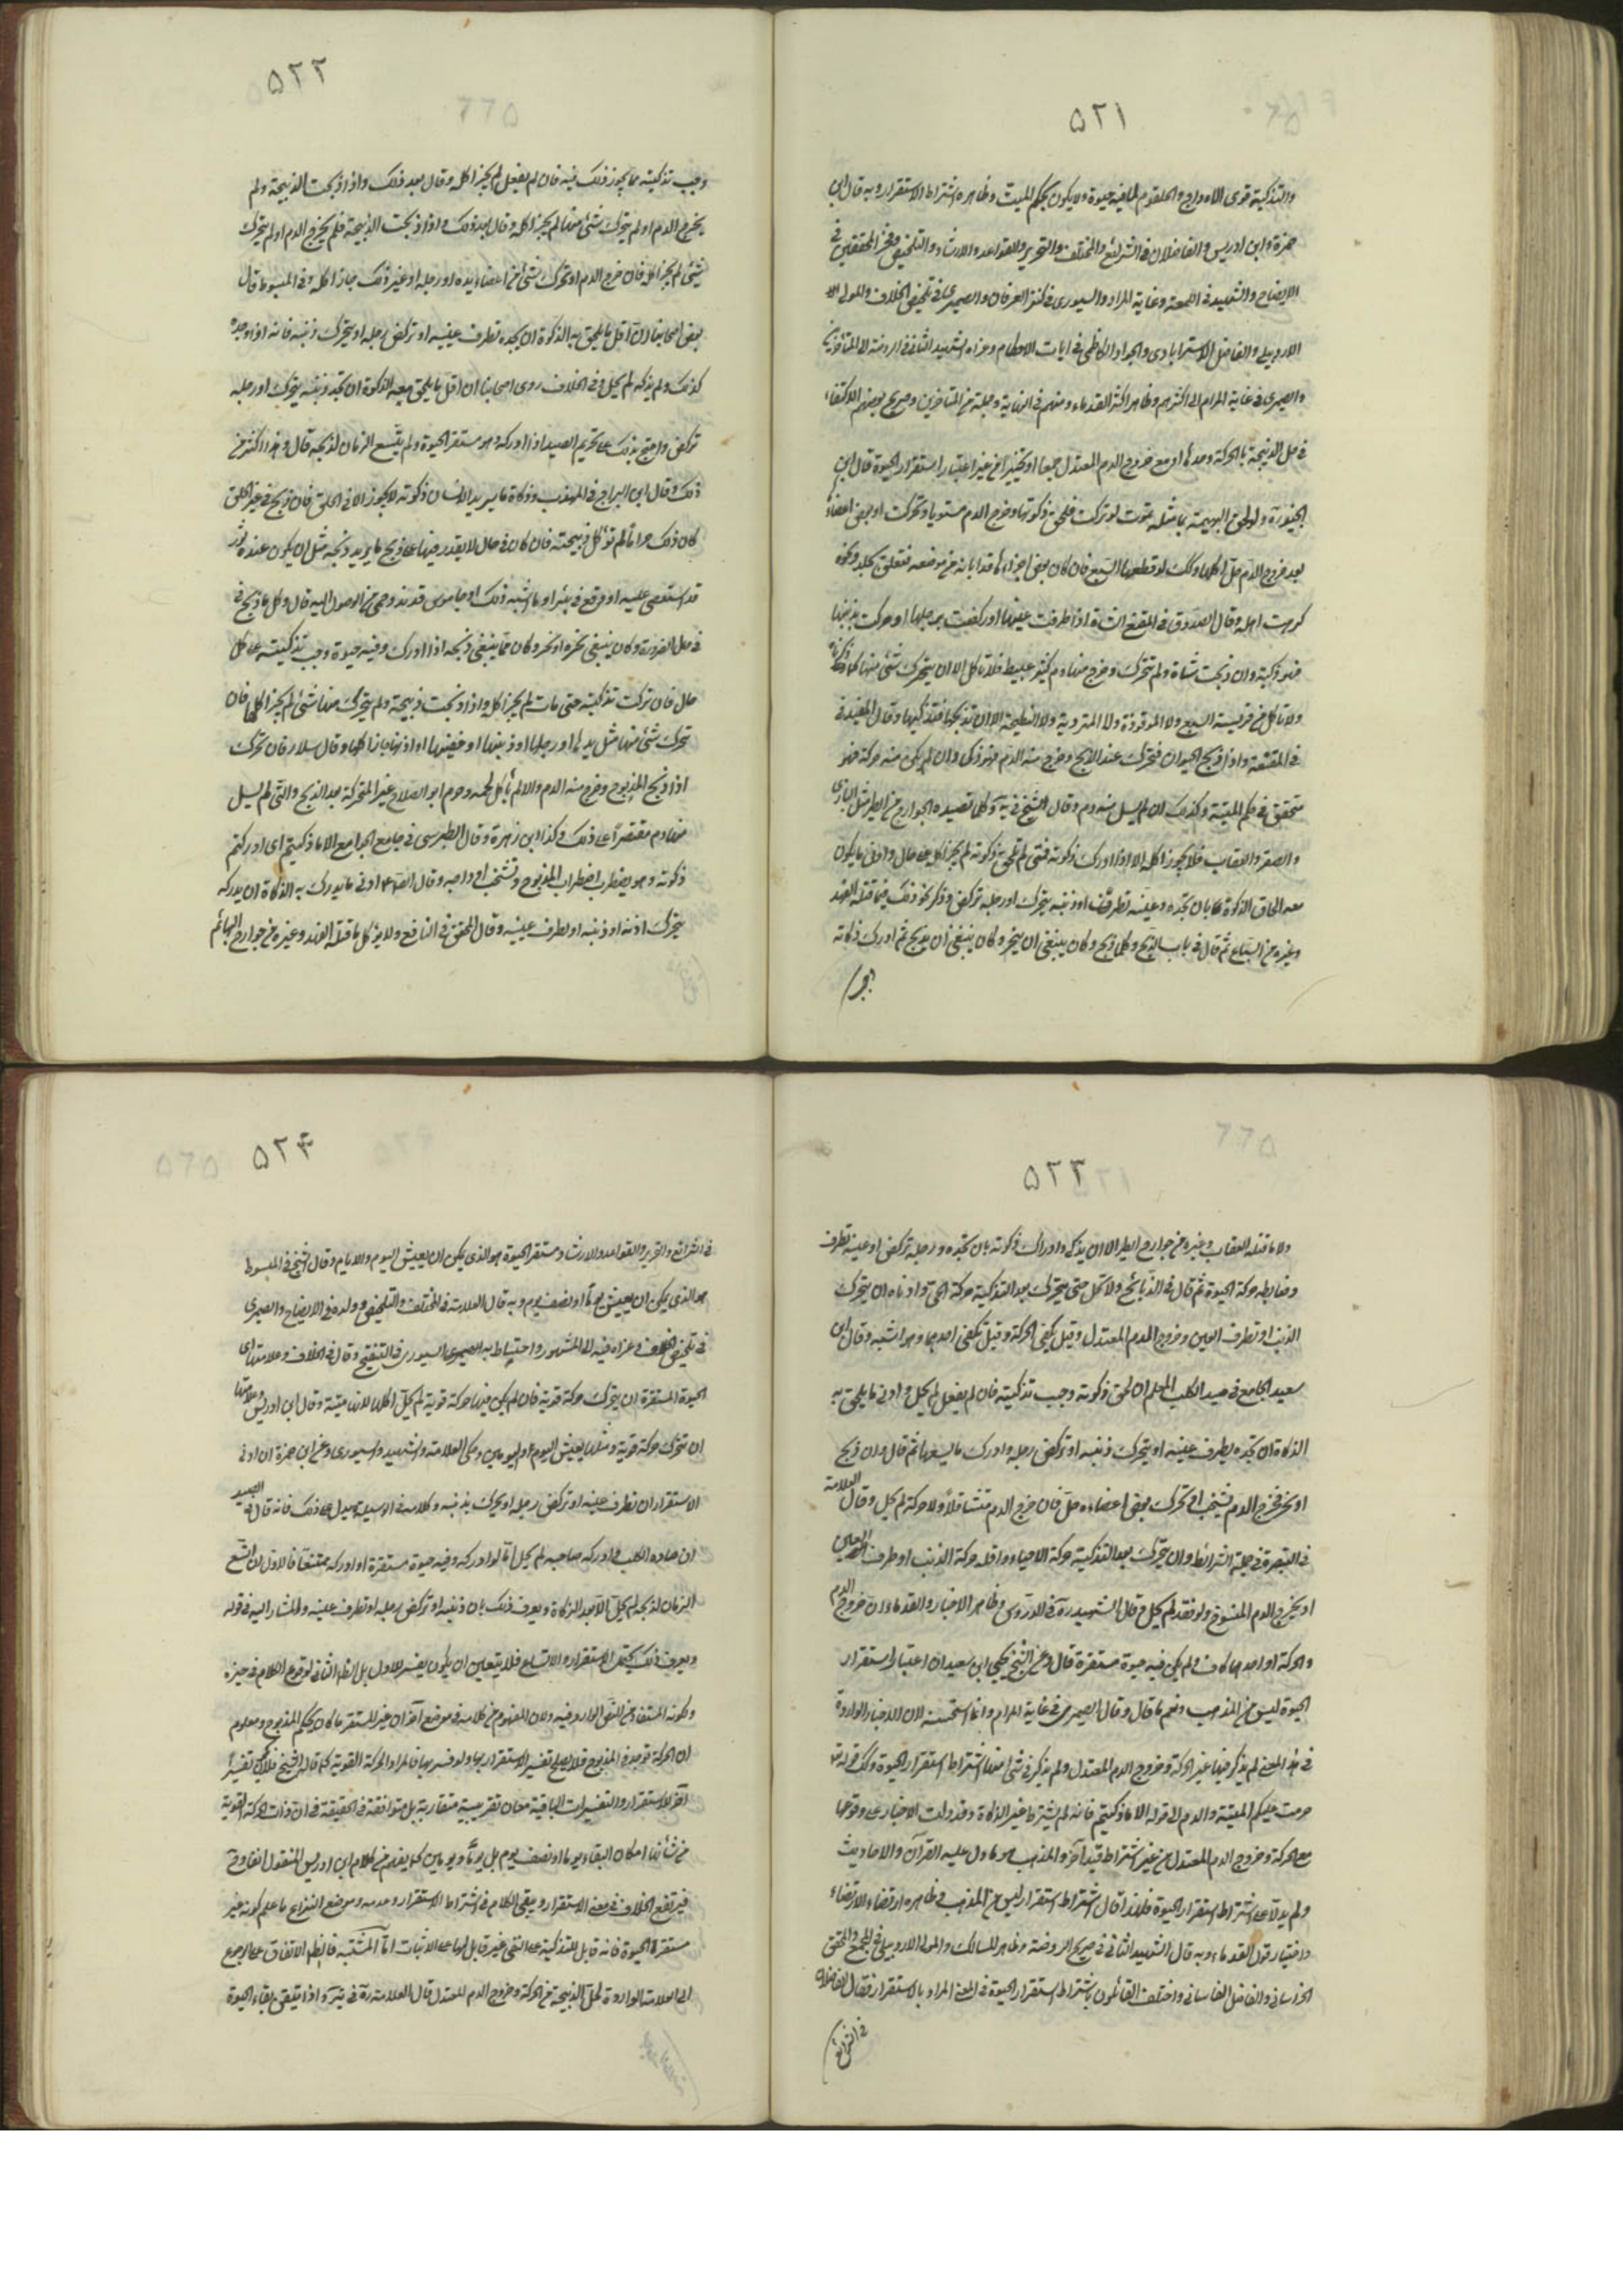 ۵۲۱
والتذكية قوى الاوداج والحلقوم لما فيه حيوة ولا يكون بحكم الميت وظاهره اشتراط الاستقرار وبه قال ابن
حمزة وابن ادريس والفاضلان في الشرائع والمختلف والتحرير والقواعد والارشاد والتلخيص وفخر المحققين في
الايضاح والشهيد في اللمعة وغاية المراد والسيوري في كنز العرفان والصيمري في تلخيص الخلاف والمولى
الاردبيلي والفاضل الاسترابادي والجواد الكاظمي في ايات الاحكام وعزاه الشهيد الثاني في الروضة الى المتأخرين
والصيمري في غاية المرام الى اكثرهم وظاهر اكثر القدماء ومنهم في النهاية وجملة من المتأخرين وصريح بعضهم الاكتفاء
في حل الذبيحة بالحركة وحدها او مع خروج الدم المعتدل جمعا او تخييرا من غير اعتبار استقرار الحيوة قال ابن
الجنيد ولو لحق البهيمة ما بمثله تموت لو تركت فلحق ذكوتها وخرج الدم مستويا وتحركت او بعض اعضائها
بعد خروج الدم حل اكلها وكذلك لو قطعها السبع فان كان بعض اجزائها قد ابانه من موضعه فتعلق بجلد ونحوه
كرهت اكله وقال الصدوق في المقنع الشاة اذا طرفت عينها او ركضت برجلها او حركت بذنبها
فهي ذكية وان ذبحت شاة ولم تتحرك وخرج منها دم كثير عبيط فلا تاكل الا ان يتحرك شئ منها كما ذكرناه
ولا تاكل من فريسة السبع ولا الموقوذة ولا المتردية ولا النطيحة الا ان تدركها فتذكيها وقال المفيد في
في المقنعة واذا ذبح الحيوان فتحرك عند الذبح وخرج منه الدم فهو ذكي وان لم يكن منه حركة فهو
متحقق في حكم الميتة وكذلك ان لم يسل منه دم وقال الشيخ في ية وكلما تصيده الجوارح من الطير مثل البازي
والصقر والعقاب فلا يجوز اكله الا اذا ادرك ذكوته فمتى لم تلحق ذكوته لم يجز اكله على حال وادنى ما يكون
معه الحاق الذكوة بان تجده وعينه تطرف او ذنبه يتحرك او رجله تركض وذكر نحو ذلك فيما قتله الفهد
وغيره من السباع ثم قال في باب الذبح وكلما ذبح وكان ينبغي ان ينحر او كان ينبغي ان يذبح ثم ادرك ذكاته
۵۲۲
وجب تذكيته مما يجوز ذلك فيه فان لم يفعل لم يجز اكله وقال بعد ذلك واذا ذبحت الذبيحة ولم
يخرج الدم او لم يتحرك شئ منها لم يجز اكله وقال بعد ذلك واذا ذبحت الذبيحة فلم يخرج الدم او لم يتحرك
شئ لم يجز اكله فان خرج الدم او تحرك شئ من اعضائه يده او رجله او غير ذلك جاز اكله وفي المبسوط قال
بعض اصحابنا ان اقل ما يلحق به الذكوة ان يجده تطرف عينه او تركض رجله او يتحرك ذنبه فانه اذا وجده
كذلك ولم يذكه لم يحل وفي الخلاف روى اصحابنا ان اقل ما يلحق معه الذكوة ان تجد ذنبه يتحرك او رجله
تركض واحتج بذلك على تحريم الصيد اذا ادركه وهو مستقر الحيوة ولم يتسع الزمان لذبحه قال وهذا اكثر من
ذلك وقال ابن البراج في المهذب وذكاة ما يريد الانسان ذكوته لا يجوز الا في الحلق فان ذبح في غير الحلق
كان ذلك حراما لم تؤكل ذبيحته فان كان في حال لا يقدر فيها على ذبح ما يريد ذبحه مثل ان يكون عنده ثور
قد استعصى عليه او وقع في بئر او ما اشبه ذلك او جاموس قد ند وحمى من الوصول اليه قال وكل ما ذبح في
في حل الضرورة وكان ينبغي نحره او نحر وكان مما ينبغي ذبحه اذا ادرك وفيه حيوة وجب تذكيته على كل
حال فان تركت تذكيته حتى مات لم يجز اكله واذا ذبحت ذبيحة ولم يتحرك منها شئ لم يجز اكلها فان
تحرك شئ منها مثل يدها او رجلها او ذنبها او جفنها او اذنها جاز اكلها وقال سلار فان تحرك
اذا ذبح المذبوح وخرج منه الدم والا لم يأكل لحمه وحرم ابو الصلاح غير المتحركة بعد الذبح والتي لم يسل
منها دم مقتصرا على ذلك وكذا ابن زهرة وقال الطبرسي في جامع الجوامع الا ما ذكيتم اي ادركتم
ذكوته وهو يضطرب اضطراب المذبوح وتشخب اوداجه وقال ادنى ما يدرك به الذكاة ان يدركه
يتحرك اذنه او ذنبه او تطرف عينه وقال المحقق في النافع ولا يؤكل ما قتله الفهد وغيره من جوارح البهائم
۵۲۳
ولا ما قتله العقاب وغيره من جوارح الطير الا ان يذكى وادراك ذكوته بان يجده ورجله تركض او عينه تطرف
وضابطه حركة الحيوة ثم قال في الذبائح ولا تحل حتى يتحرك بعد التذكية حركة الحي وادناه ان يتحرك
الذنب او تطرف العين وخروج الدم المعتدل وقيل يكفي الحركة وقيل تكفي احدهما وهو اشبه وقال ابن
سعيد في الجامع في صيد الكلب المعلم ان لحق ذكوته وجب تذكيته فان لم يفعل لم يحل وادنى ما يلحق به
الذكاة ان تجده يطرف عينه او يتحرك ذنبه او تركض رجله وادرك ما يسعها ثم قال وان ذبح
او نحر فخرج الدم يشخب او تحرك بعض اعضاءه حل فان خرج الدم متثاقلا ولا حركة لم يحل وقال العلامة
في التبصرة في جملة الشرائط وان يتحرك بعد التذكية حركة الاحياء واقله حركة الذنب او طرف العين
او يخرج الدم المسفوح ولو فقد لم يحل وقال الشهيد ره في الدروس وظاهر الاخبار والقدماء ان خروج الدم
والحركة او احدهما كاف ولم يكن فيه حيوة مستقرة قال وعن الشيخ يحيى ابن سعيد ان اعتبار استقرار
الحيوة ليس من المذهب ونعم ما قال وقال الصيمري في غاية المرام وانما استحسنه لان الاخبار الواردة
في هذا المعنى لم يذكر فيها غير الحركة وخروج الدم المعتدل ولم يذكر في شئ منها اشتراط استقرار الحيوة وكذلك قوله
حرمت عليكم الميتة والدم الى قوله الا ما ذكيتم فانه لم يشترط غير الذكاة وقد دلت الاخبار على وقوعها
مع الحركة وخروج الدم المعتدل من غير اشتراط قيد آخر والمذهب هو ما دل عليه القرآن والاحاديث
ولم يدلا على اشتراط استقرار الحيوة فلذا قال اشتراط استقرار ليس من المذهب وظاهره ارتضاء
واختيار قول القدماء وبه قال الشهيد الثاني في صريح الروضة وظاهر المسالك والمولى الاردبيلي في المجمع والمحقق
الخراساني والفاضل القاساني واختلف القائلون باشتراط استقرار الحيوة في المعنى المراد بالاستقرار فقال الفاضلان
في الشرائع
۵۲۴
في الشرائع والتحرير والقواعد والارشاد ومستقر الحيوة هو الذي يمكن ان يعيش اليوم والايام وقال الشيخ في المبسوط
هو الذي يمكن ان يعيش يوما او نصف يوم وبه قال العلامة في المختلف والتلخيص وولده في الايضاح والصيمري
في تلخيص الخلاف وعزاه فيه الى المشهور واحتاط به السيوري في التنقيح وقال في الخلاف وعلامتها اي
الحيوة المستقرة ان يتحرك حركة قوية فان لم يكن فيها حركة قوية لم يحل اكلها لانها ميتة وقال ابن ادريس وعلامتها
ان تتحرك حركة قوية ومثلها يعيش اليوم او اليومين وحكى العلامة والشهيد والسيوري عن ابن حمزة ان ادنى
الاستقرار ان تطرف عينه او تركض رجله او يحرك بذنبه وكلامه في الوسيلة يدل على ذلك فانه قال في الصيد
ان صاده الكلب وادركه صاحبه لم يخل اما لو ادركه وفيه حيوة مستقرة او ادركه ممتنعا فالاول ان اتسع
الزمان لذبحه لم يحل الا بعد الذكاة ويعرف ذلك بان ذنبه او تركض رجله او تطرف عينه والمشار اليه في قوله
ويعرف ذلك يحتمل الاستقرار والاتساع فلا يتعين ان يكون تفسير للاول بل الظاهر الثاني لوقوع الكلام في حيزه
ولكونه المستفاد من النص الوارد فيه ولان المفهوم من كلامه في موضع آخر ان غير المستقر ما كان بحكم المذبوح ومعلوم
ان الحركة توجد في المذبوح فلا يصلح تفسير الاستقرار بها ولو فسر بها فالمراد الحركة القوية كما قال الشيخ فلا يكون تفسيرا
آخر للاستقرار والتفسيرات الباقية معان تقريبية متقاربة بل متوافقة في الحقيقة في ان ذات الحركة القوية
من شأنها امكان البقاء يوما او نصف يوم بل يوما ويومين كما يفهم من كلام ابن ادريس المنقول انفا وح
فيرتفع الخلاف في معنى الاستقرار ويبقى الكلام في اشتراط الاستقرار وعدمه وموضع النزاع ما علم كونه غير
مستقر الحيوة فانه قابل للتذكية على النفي غير قابل لها على الاثبات اما المشتبه فالظاهر الاتفاق على الرجوع
الى العلامة الواردة لحل الذبيحة من الحركة وخروج الدم المعتدل قال العلامة ره في ير اذا تيقن بقاء الحيوة